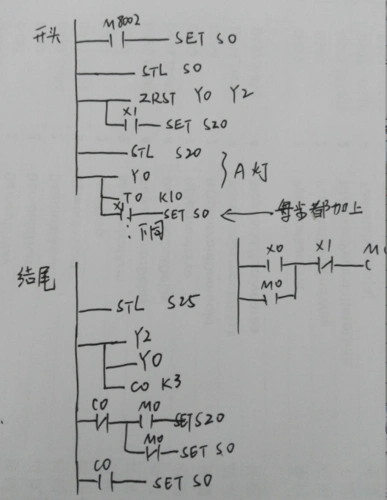 开头
M8002
SET S0
STL S0
ZRST Y0 Y2
X1
SET S20
STL S20
Y0
A灯
T0 K10
X1
SET S0
每步都加上
:下同
X0 X1 M0
M0
结尾
STL S25
Y2
Y0
C0 K3
C0 M0 SET S20
M0 SET S0
C0 SET S0